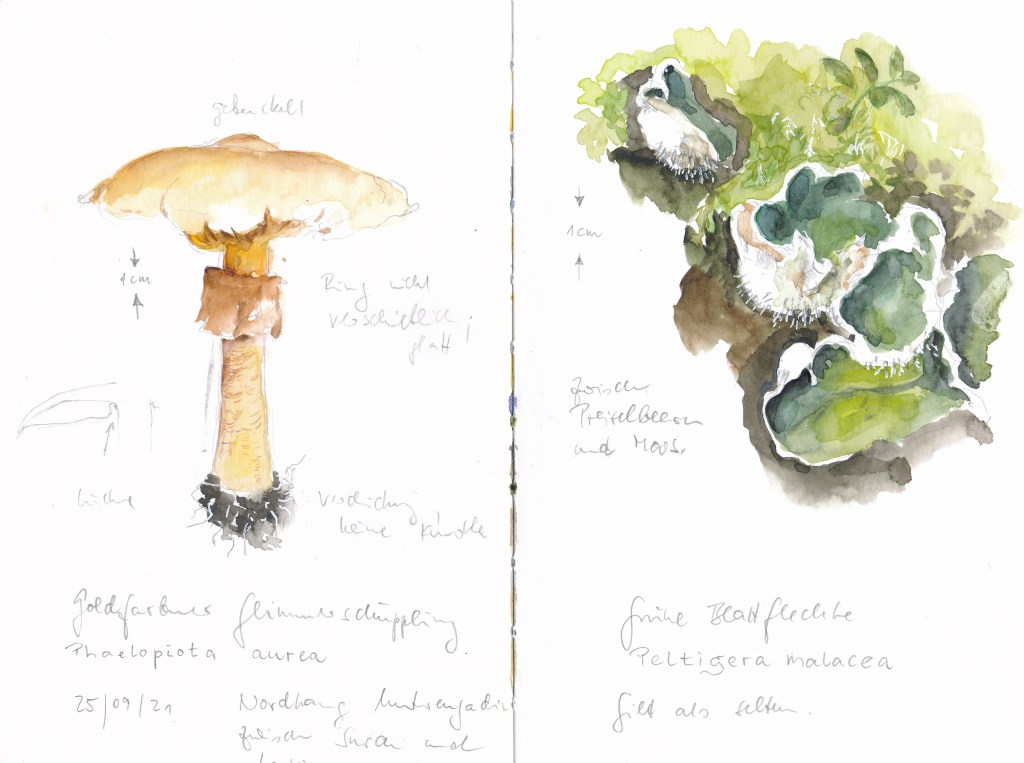 gebuckelt
1cm
Ring nicht
verschieblich
glatt!
Lücke
keine
Goldfarbener Glimmerschüppling
Phaelopiota aurea
25/09/21
Nordhang Unterengadin
zwischen Surön und
1cm
zwischen
Preiselbeeren
und Moos.
Grüne Blattflechte
Peltigera malacea
Gilt als selten.